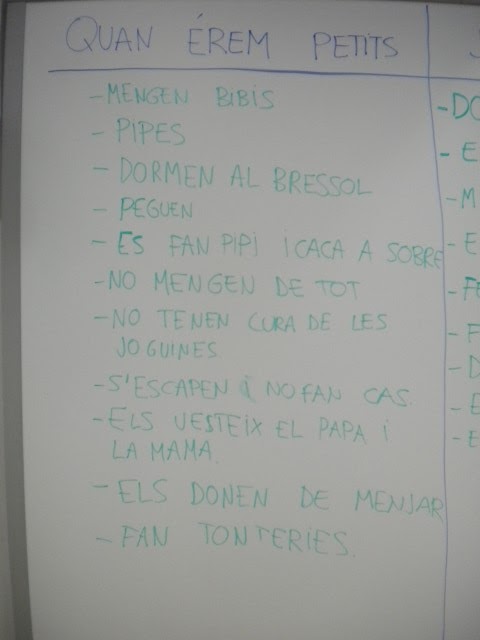 QUAN ÉREM PETITS
- MENGEN BIBIS
- PIPES
- DORMEN AL BRESSOL
- PEGUEN
- ES FAN PIPI I CACA A SOBRE
- NO MENGEN DE TOT
- NO TENEN CURA DE LES
JOGUINES
- S'ESCAPEN i NO FAN CAS.
- ELS VESTEIX EL PAPA i
LA MAMA.
- ELS DONEN DE MENJAR
- FAN TONTERIES.